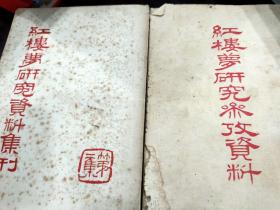 紅樓夢研究資料集刊
第一集
紅樓夢研究參攷資料